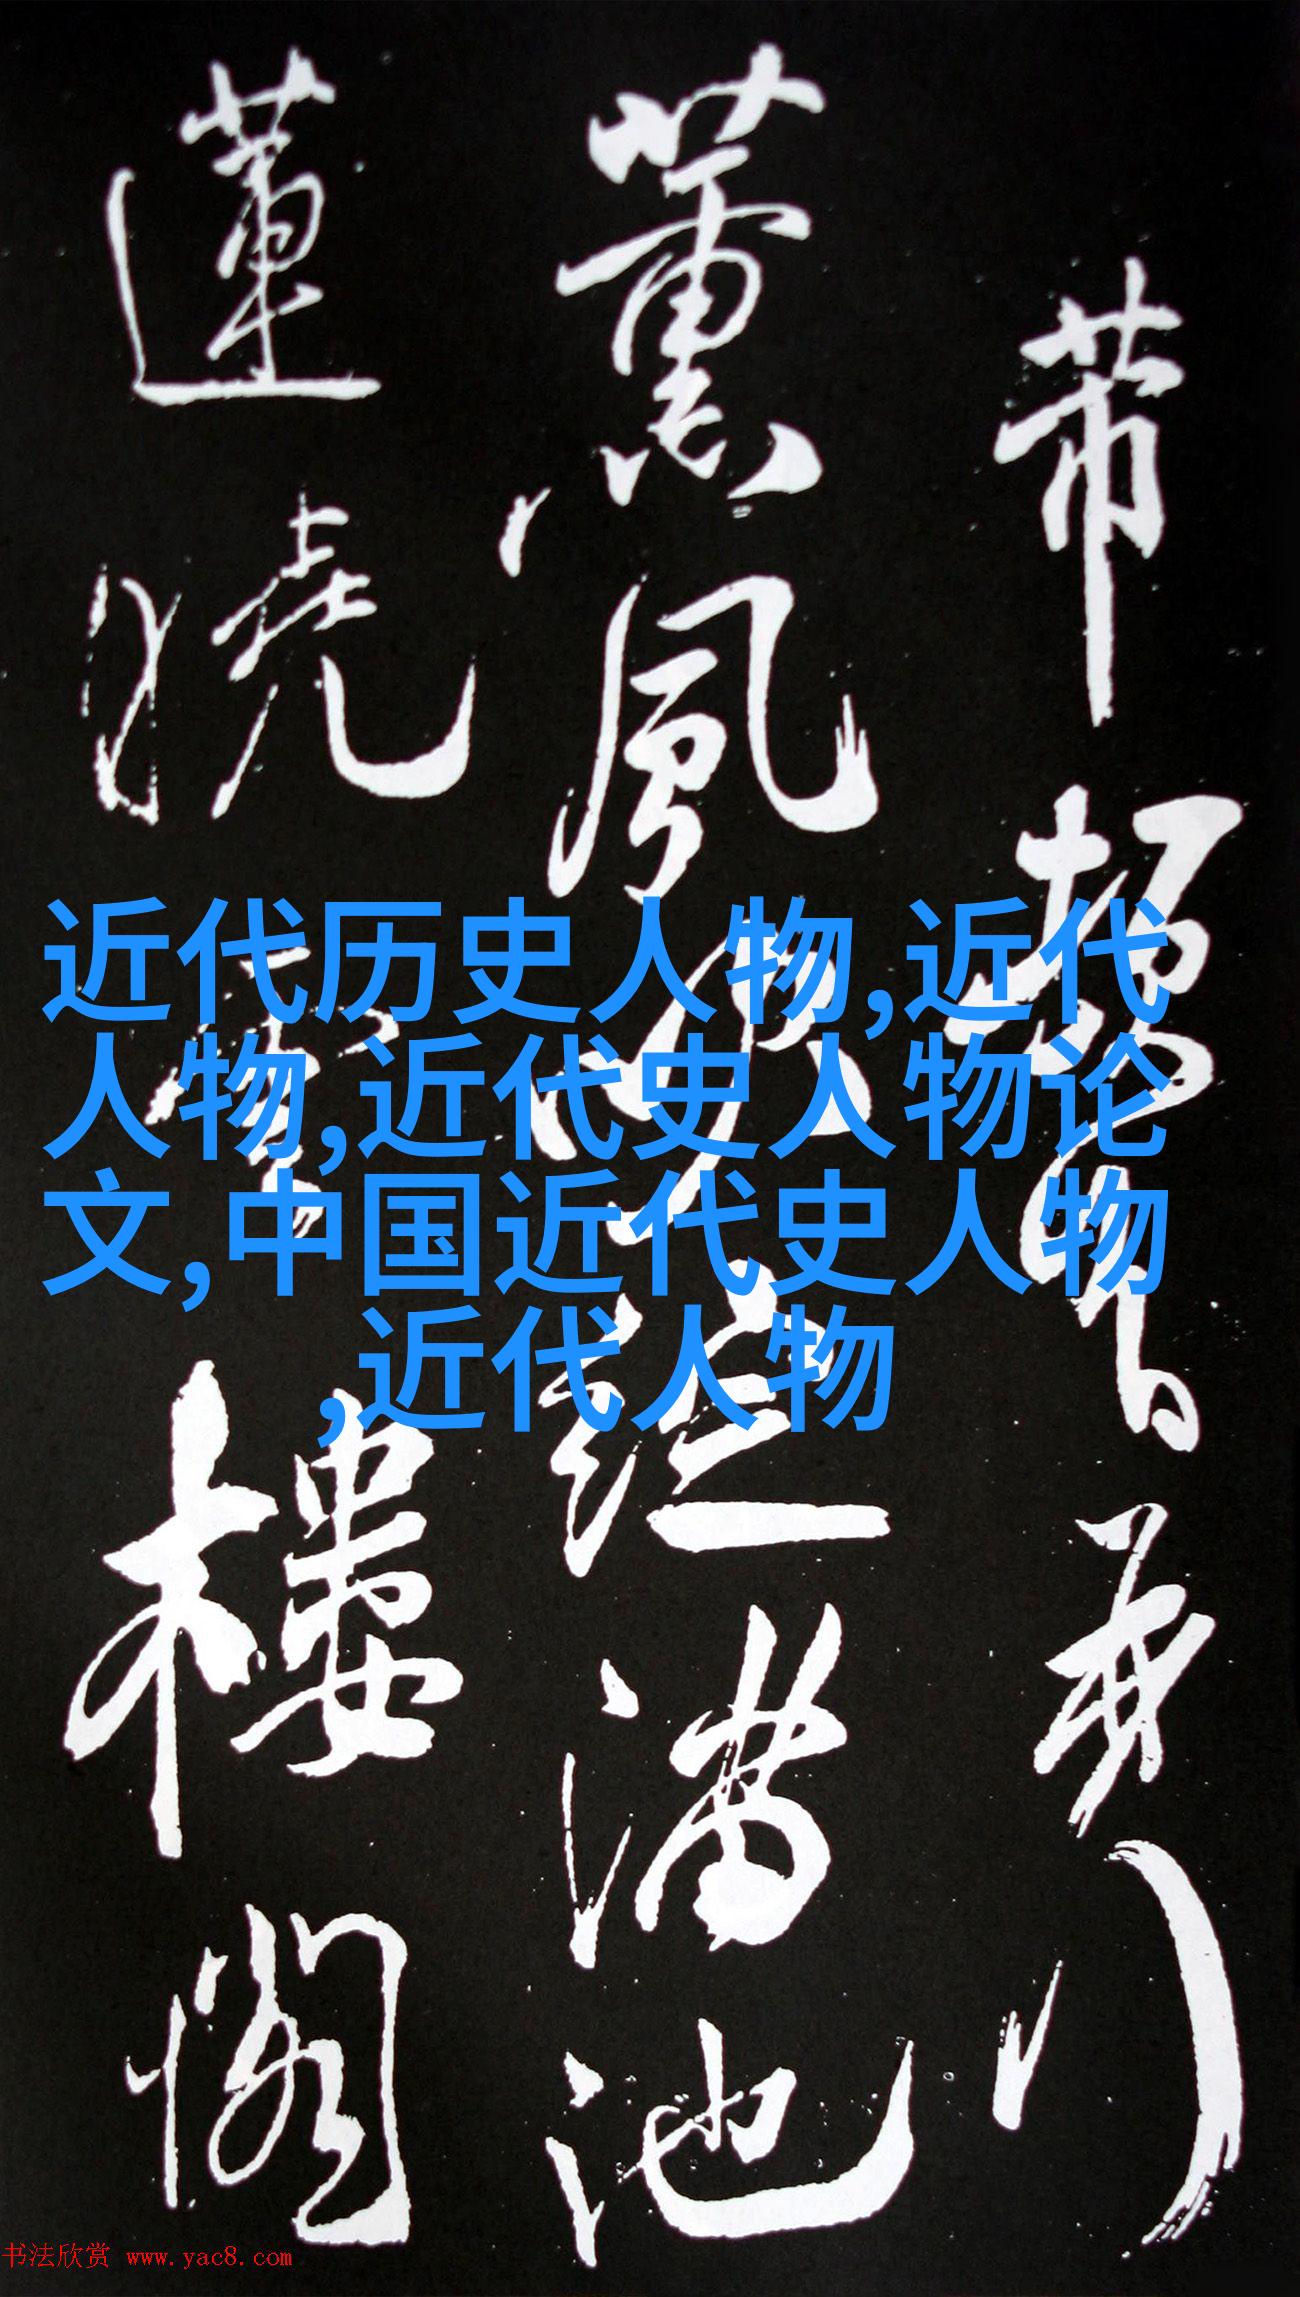 近代历史人物,近代
人物,近代史人物论
文,中国近代史人物
,近代人物
薰風吹綻滿池
蓮繞樓閣
书法欣赏 www.yac8.com